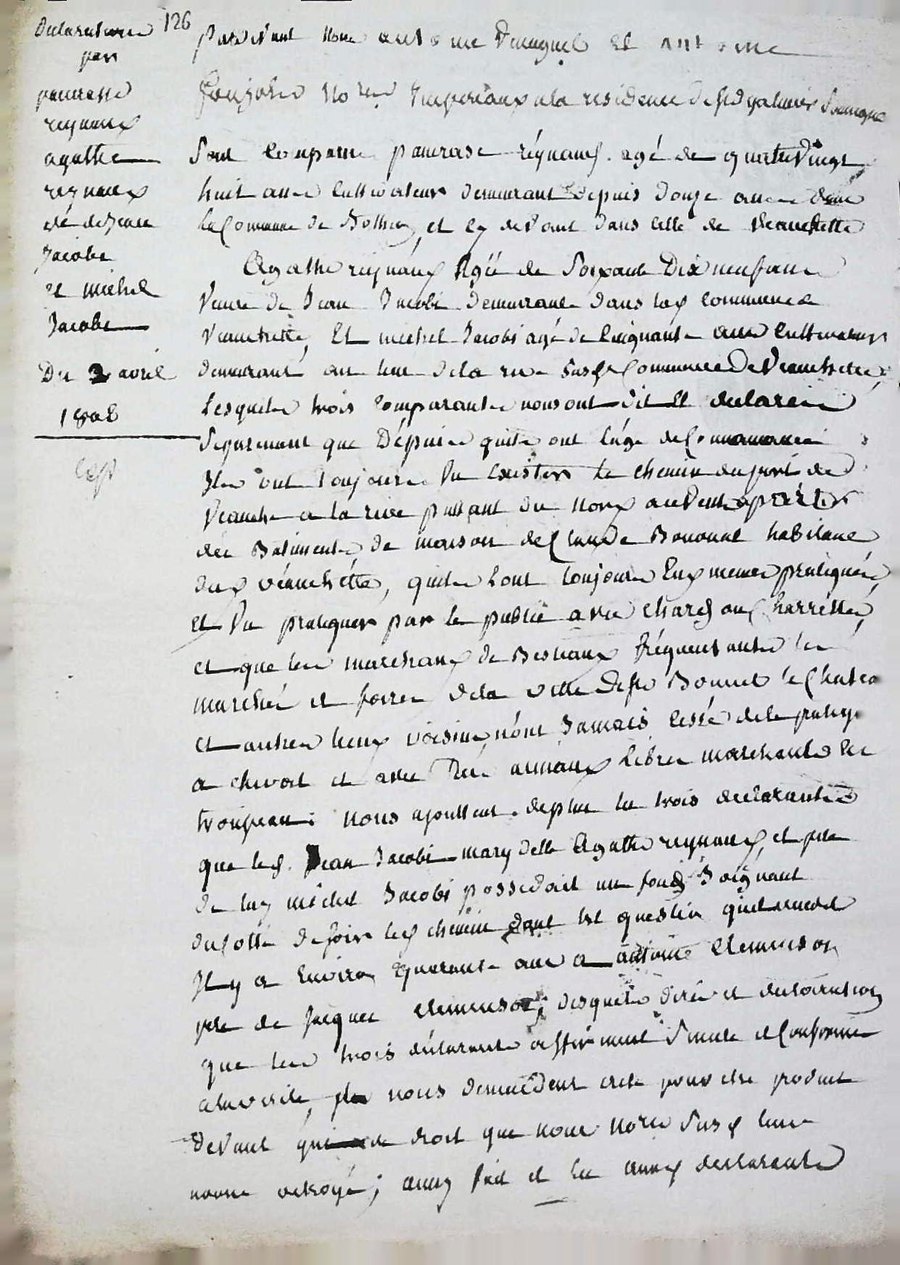 126
Declaration
par
pancrasse
reynaux
agathe
reynaux
ve de Jean
Jacobi
et michel
Jacobi
Du 2 avril
1808
pardevant nous antoine et antoine
No.res Imperiaux a la residence de
Sont Comparu pancrase reynaux agé de quatre Vingt
huit ans Cultivateur demeurant depuis douze ans dans
la Commune de et cy devant dans celle de Veauchette
Agathe reynaux Agée de Soixante Dix neuf ans
Veuve de Jean Jacobi demeurant dans la.e commune de
Veauchette, Et michel Jacobi agé de Cinquante ans Cultivateur
demeurant au lieu de la rive Susd.e Commune De Veauchette,
Lesquels trois Comparants nous ont dit Et declaré
Séparément que Depuis quils ont l'age de Connaissance
Ils ont Toujours Vu Exister le chemin du port de
Veauche a la rive passant du Nord au Vent
des Batiments de maison de Claude Bonnant habitant
dud veauchette, quils l'ont toujours Eux memes pratiqué,
et Vu pratiquer par le public avec chars ou Charrettes,
et que les marchands de Bestiaux fréquentants les
marchés et foires de la ville de St Bonnet le Chateau
et autres lieux voisins, n'ont Jamais cessé de le pratiquer
a cheval et avec Des animaux libres marchants en
troupeau. Nous ajoutent de plus les trois declarants
que led. Jean Jacobi mary delle Agathe reynaux, et pere
de luy michel Jacobi possedait un fonds Joignant
du cotté de soir led chemin dont Est question quil vendit
Il y a Environ quarante ans a antoine Clemenson
pere de Jacques Clemenson; desquels dires et declaration
que les trois déclarants affirment Sincere et Conforme
a la verité, Ils nous demandent acte pour etre produit
devant qui de droit que nous No.res Susd leur
avons octroyé; ainsy fait et les ainsy declarants